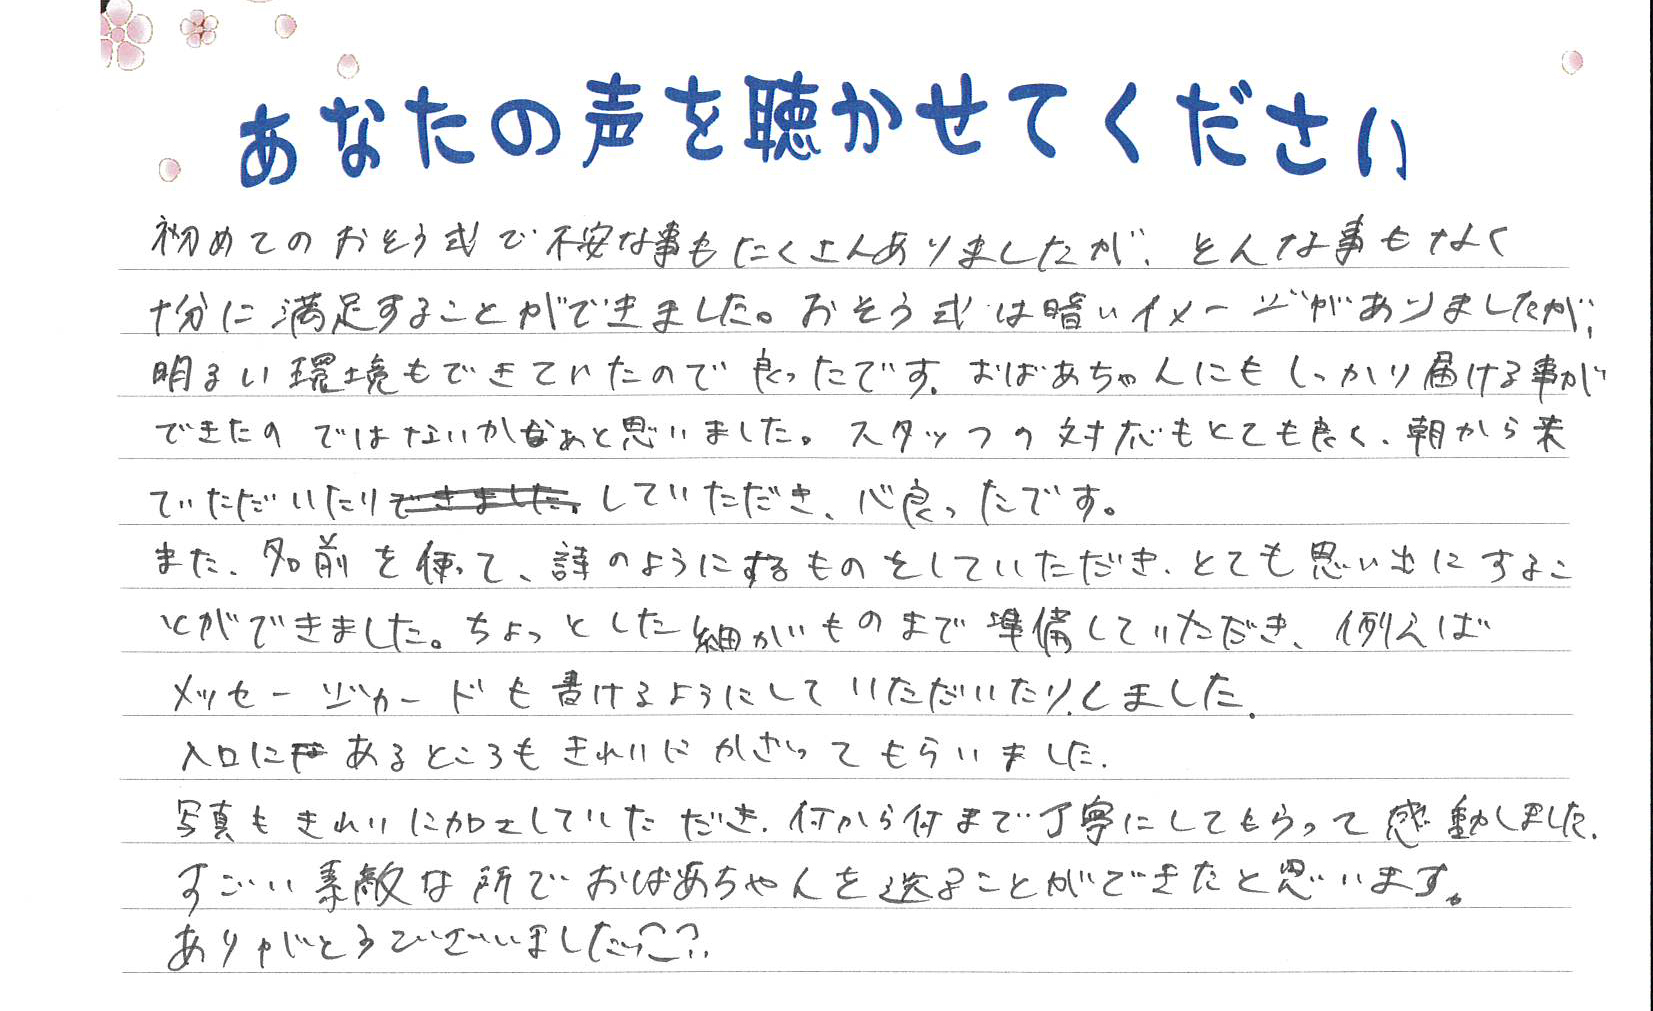 あなたの声を聴かせてください
初めてのおそう式で不安な事もたくさんありましたが、そんな事もなく
十分に満足することができました。おそう式は暗いイメージがありましたが、
明るい環境もできていたので良ったです。おばあちゃんにもしっかり届ける事が
できたのではないかなぁと思いました。スタッフの対応もとても良く、朝から来
ていただいたりできました。していただき、心良ったです。
また、名前を使って、詩のようにするものをしていただき、とても思い出にするこ
とができました。ちょっとした細かいものまで準備していただき、例えば
メッセージカードも書けるようにしていただいたりしました。
入口にあるところもきれいにかざってもらいました。
写真もきれいに加工していただき、何から何まで丁寧にしてもらって感動しました。
すごい素敵な所でおばあちゃんを送ることができたと思います。
ありがとうございました